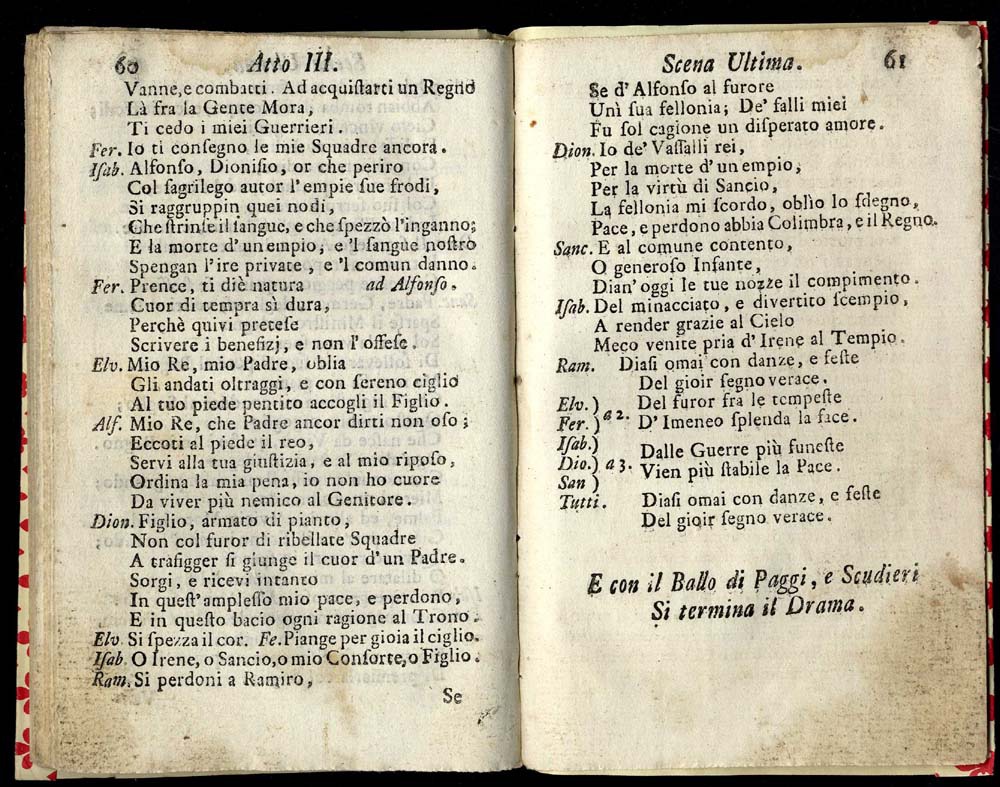 60 Atto III.
Vanne, e combatti. Ad acquiſtarti un Regno
Là fra la Gente Mora,
Ti cedo i miei Guerrieri.
Fer. Io ti conſegno le mie Squadre ancora.
Iſab. Alfonſo, Dioniſio, or che periro
Col ſagrilego autor l'empie ſue frodi,
Si raggruppin quei nodi,
Che ſtrinſe il ſangue, e che ſpezzò l'inganno;
E la morte d'un empio, e 'l ſangue noſtro
Spengan l'ire private, e 'l comun danno.
Fer. Prence, ti diè natura ad Alfonſo.
Cuor di tempra sì dura,
Perchè quivi preteſe
Scrivere i benefizj, e non l'offeſe.
Elv. Mio Re, mio Padre, oblia
Gli andati oltraggi, e con ſereno ciglio
Al tuo piede pentito accogli il Figlio.
Alf. Mio Re, che Padre ancor dirti non oſo;
Eccoti al piede il reo,
Servi alla tua giuſtizia, e al mio ripoſo,
Ordina la mia pena, io non ho cuore
Da viver più nemico al Genitore.
Dion. Figlio, armato di pianto,
Non col furor di ribellate Squadre
A trafigger ſi giunge il cuor d'un Padre.
Sorgi, e ricevi intanto
In queſt'ampleſſo mio pace, e perdono,
E in queſto bacio ogni ragione al Trono.
Elv. Si ſpezza il cor. Fe. Piange per gioia il ciglio.
Iſab. O Irene, o Sancio, o mio Conſorte, o Figlio.
Ram. Si perdoni a Ramiro,
Se
Scena Ultima. 61
Se d'Alfonſo al furore
Unì ſua fellonia; De' falli miei
Fu ſol cagione un diſperato amore.
Dion. Io de' Vaſſalli rei,
Per la morte d'un empio,
Per la virtù di Sancio,
La fellonia mi ſcordo, oblìo lo ſdegno,
Pace, e perdono abbia Colimbra, e il Regno.
Sanc. E al comune contento,
O generoſo Infante,
Dian' oggi le tue nozze il compimento.
Iſab. Del minacciato, e divertito ſcempio,
A render grazie al Cielo
Meco venite pria d'Irene al Tempio.
Ram. Diaſi omai con danze, e feſte
Del gioir ſegno verace.
Elv. ) Del furor fra le tempeſte
Fer. ) a 2. D'Imeneo ſplenda la face.
Iſab. ) Dalle Guerre più funeſte
Dio. ) a 3. Vien più ſtabile la Pace.
San )
Tutti. Diaſi omai con danze, e feſte
Del gioir ſegno verace.
E con il Ballo di Paggi, e Scudieri
Si termina il Drama.